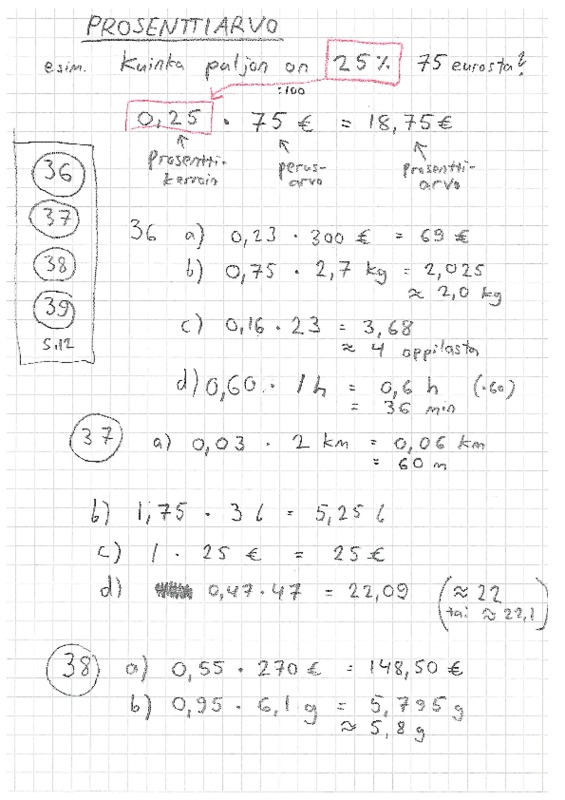 PROSENTTIARVO
esim. Kuinka paljon on 25% 75 eurosta?
:100
0,25 · 75 € = 18,75 €
prosentti-
kerroin
perus-
arvo
prosentti-
arvo
36
37
38
39
s.12
36 a) 0,23 · 300 € = 69 €
b) 0,75 · 2,7 kg = 2,025
≈ 2,0 kg
c) 0,16 · 23 = 3,68
≈ 4 oppilasta
d) 0,60 · 1 h = 0,6 h (·60)
= 36 min
37 a) 0,03 · 2 km = 0,06 km
= 60 m
b) 1,75 · 3 l = 5,25 l
c) 1 · 25 € = 25 €
d) 0,47 · 47 = 22,09 (≈ 22
tai ≈ 22,1)
38 a) 0,55 · 270 € = 148,50 €
b) 0,95 · 6,1 g = 5,795 g
≈ 5,8 g